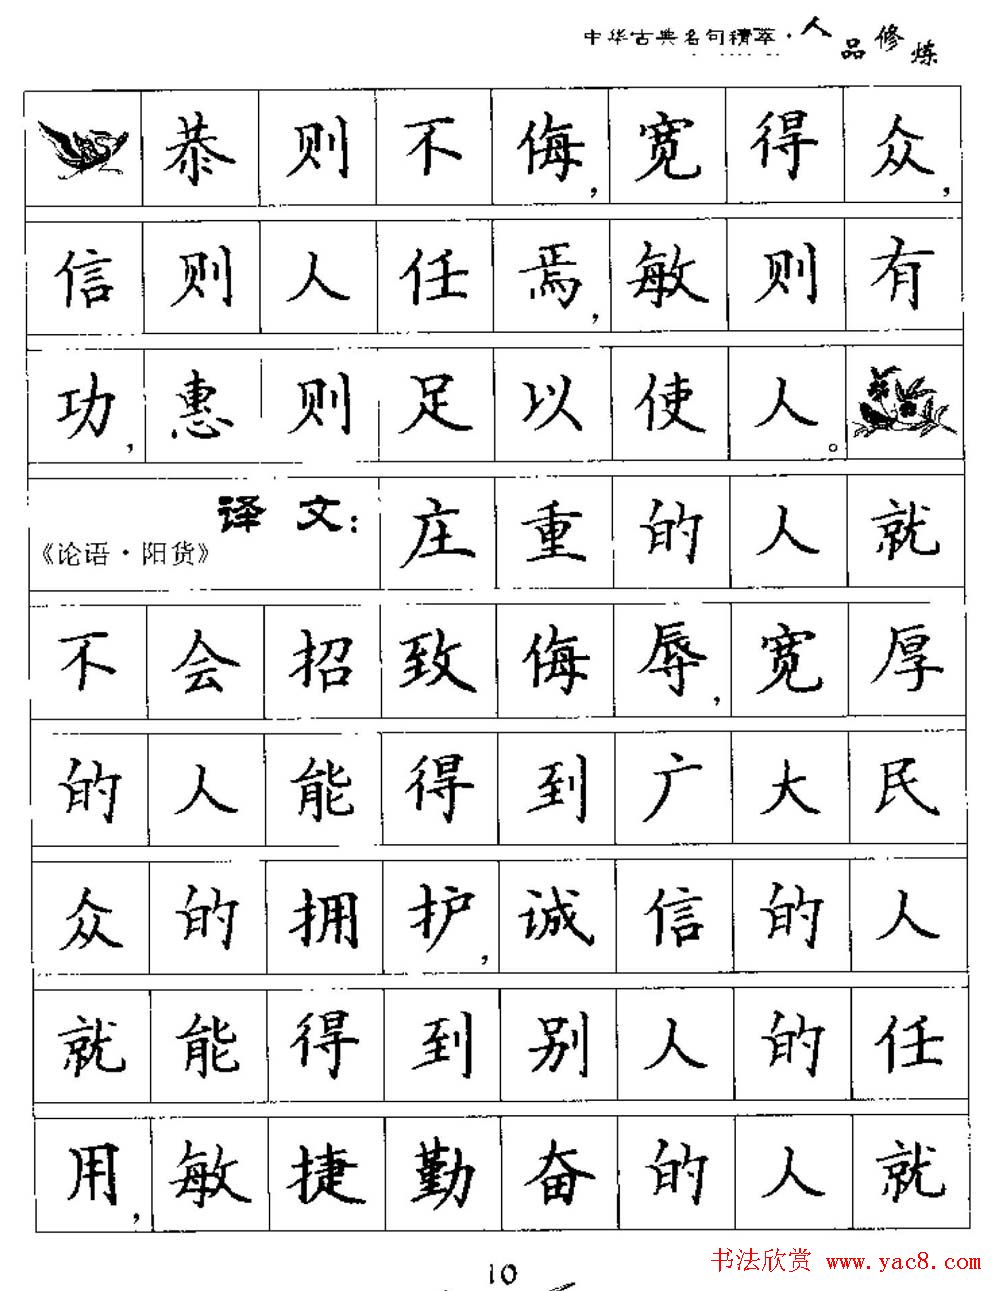 中华古典名句精萃·人品修炼
恭则不侮,宽得众,
信则人任焉,敏则有
功,惠则足以使人。
译文:庄重的人就
《论语·阳货》
不会招致侮辱,宽厚
的人能得到广大民
众的拥护,诚信的人
就能得到别人的任
用,敏捷勤奋的人就
10
书法欣赏 www.yac8.com